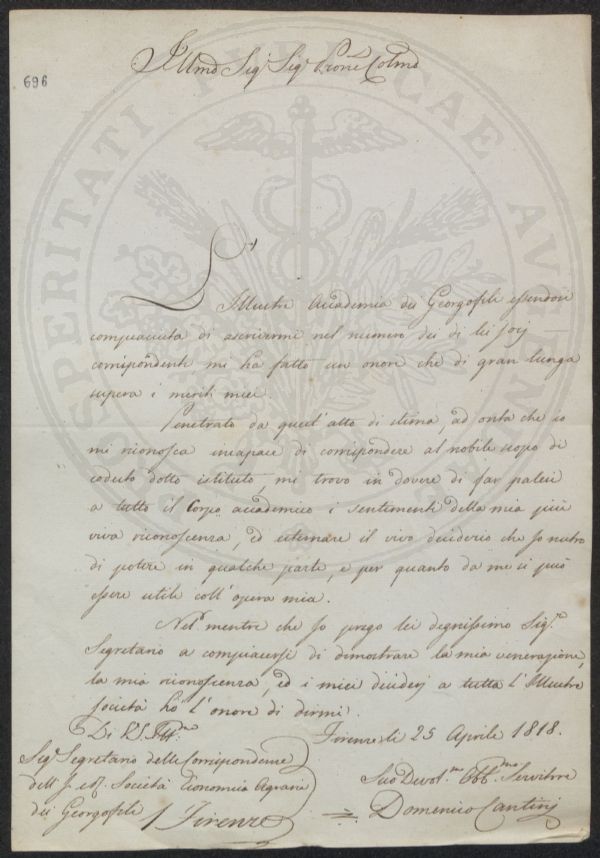 696
Illmo Sigr Sigr Prone Colmo
L' Illustre Accademia dei Georgofili essendosi
compiaciuta di ascrivermi nel numero dei di lei socj
corrispondenti mi ha fatto un onore che di gran lunga
supera i meriti miei.
Penetrato da quest'atto di stima, ad onta che io
mi riconosca incapace di corrispondere al nobile scopo di
codesto dotto istituto, mi trovo in dovere di far palesi
a tutto il Corpo accademico i sentimenti della mia più
viva riconoscenza, ed esternare il vivo desiderio che Io nutro
di potere in qualche parte, e per quanto da me si può
essere utile coll'opera mia.
Nel mentre che Io prego lei degnissimo Sigre
Segretario a compiacersi di dimostrare la mia venerazione,
la mia riconoscenza, ed i miei desiderj a tutta l'Illustre
Società hò l'onore di dirmi.
Di VS. Illma
Firenze li 25 Aprile 1818.
Sigr Segretario delle Corrispondenze
dell' I. e R. Società Economica Agraria
dei Georgofili / Firenze
Suo Devotmo Obbmo Servitore
Domenico Cantinj
PROSPERITATI PUBLICAE AUGENDAE